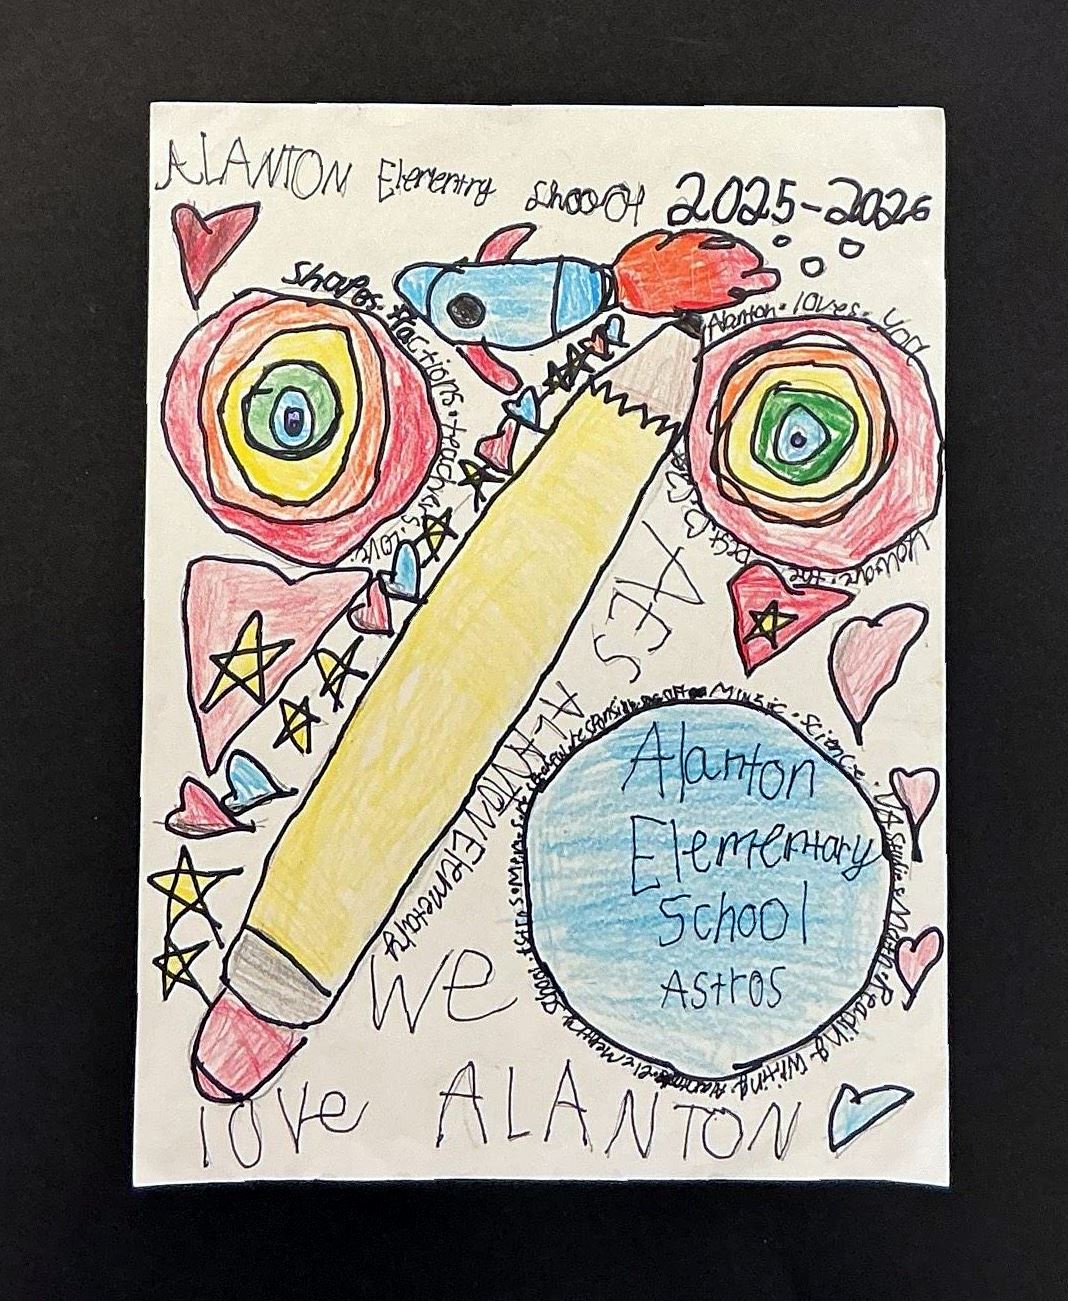 ALANTON Elementry Shoool 2025-2026
shapes. fractions. teachers. love.
Alanton. loves. you
You are. the best.
AES
ALANTON Elementary
Music. Science.
Math. Reading. Writing.
Alanton
Elementary
School
Astros
We
love ALANTON